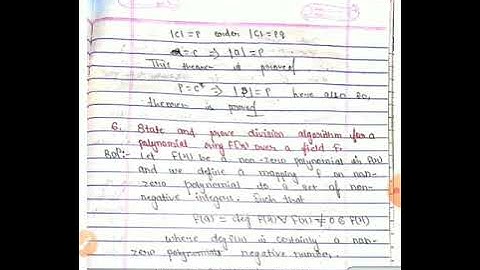 |C| = P order |C| = Pq
a = c ⇒ |a| = P
This theorem is proved
P = c ⇒ |g| = P here also so,
theorem is proved
6. State and prove division algorithm for a
polynomial ring F[x] over a field F.
Let F(x) be a non-zero polynomial in
and we define a mapping f on non-
zero polynomial to a set of non-
negative integers. Such that
F(x) = deg F(x) ∀ F(x) ≠ 0 ∈ F(x)
where degree is certainly a non-
zero negative number.